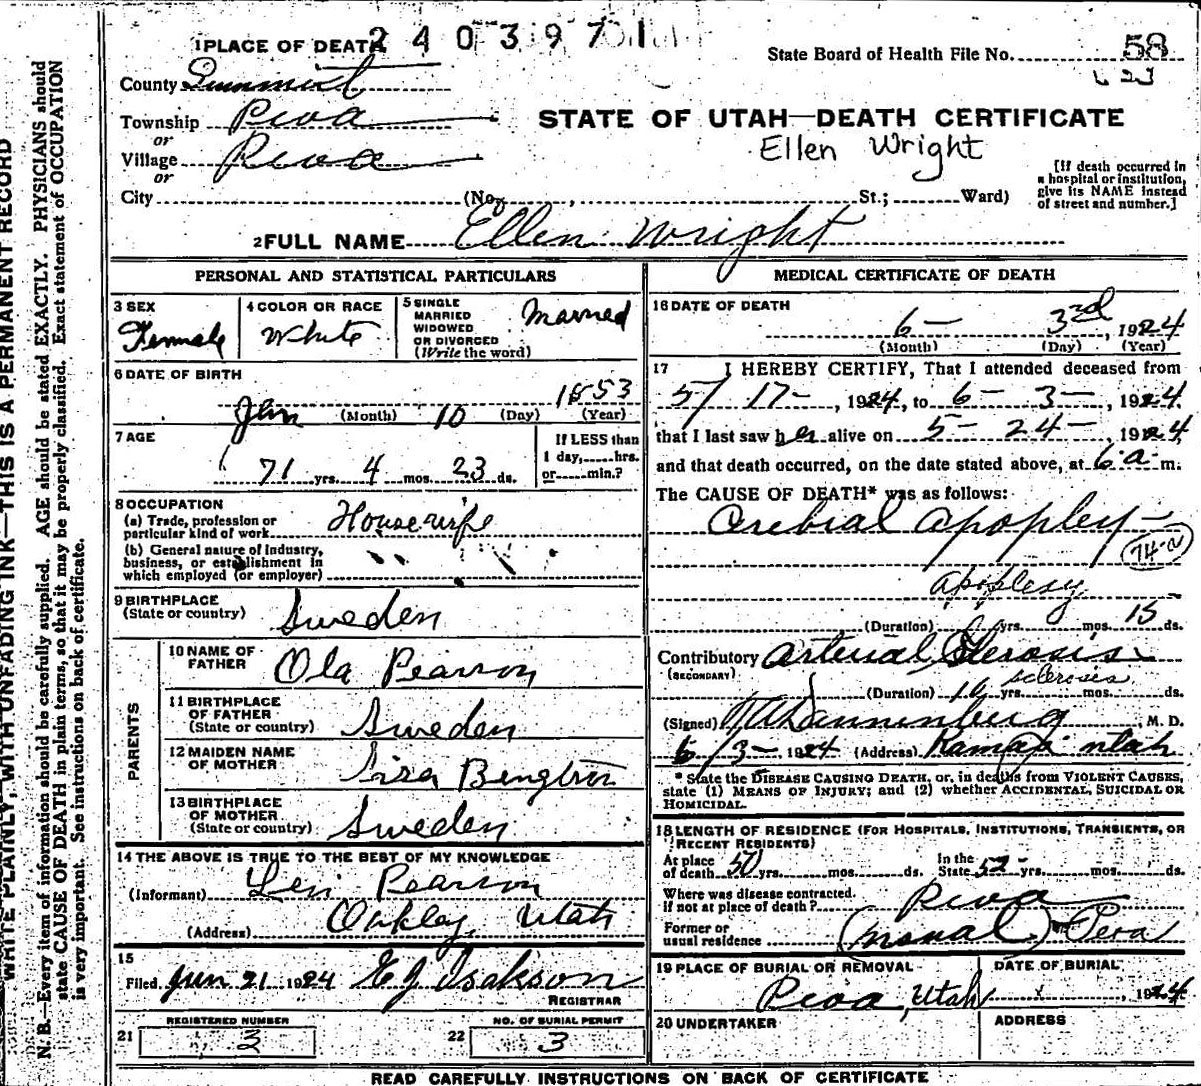 240397
1 PLACE OF DEATH
State Board of Health File No. 58
623
County Summit
Township Peoa
or
Village Peoa
or
City (No. , St.; Ward)
STATE OF UTAH—DEATH CERTIFICATE
Ellen Wright
[If death occurred in
a hospital or institution,
give its NAME instead
of street and number.]
2 FULL NAME Ellen Wright
PERSONAL AND STATISTICAL PARTICULARS
3 SEX
Female
4 COLOR OR RACE
White
5 SINGLE
MARRIED
WIDOWED
OR DIVORCED
(Write the word)
Married
6 DATE OF BIRTH
Jan (Month) 10 (Day) 1853 (Year)
7 AGE
71 yrs. 4 mos. 23 ds.
If LESS than
1 day, hrs.
or min.?
8 OCCUPATION
(a) Trade, profession or
particular kind of work Housewife
(b) General nature of industry,
business, or establishment in
which employed (or employer)
9 BIRTHPLACE
(State or country) Sweden
PARENTS
10 NAME OF
FATHER Ola Pearson
11 BIRTHPLACE
OF FATHER
(State or country) Sweden
12 MAIDEN NAME
OF MOTHER Sisa Bengtson
13 BIRTHPLACE
OF MOTHER
(State or country) Sweden
14 THE ABOVE IS TRUE TO THE BEST OF MY KNOWLEDGE
(Informant) Levi Pearson
(Address) Oakley, Utah
15
Filed Jun 21 1924 E J Isakson
REGISTRAR
REGISTERED NUMBER
21 3
NO. OF BURIAL PERMIT
22 3
MEDICAL CERTIFICATE OF DEATH
16 DATE OF DEATH
6- 3rd, 1924
(Month) (Day) (Year)
17 I HEREBY CERTIFY, That I attended deceased from
5/ 17-, 1924, to 6- 3-, 1924
that I last saw her alive on 5- 24-, 1924
and that death occurred, on the date stated above, at 6 a m.
The CAUSE OF DEATH* was as follows:
Cerebral apoplexy
74-a
apoplexy
(Duration) yrs. mos. 15 ds.
Contributory Arterial Sclerosis
(SECONDARY)
sclerosis
(Duration) 10 yrs. mos. ds.
(Signed) Dannenburg, M. D.
6/3- 1924 (Address) Kamas Utah
* State the DISEASE CAUSING DEATH, or, in deaths from VIOLENT CAUSES,
state (1) MEANS OF INJURY; and (2) whether ACCIDENTAL, SUICIDAL OR
HOMICIDAL.
18 LENGTH OF RESIDENCE (FOR HOSPITALS, INSTITUTIONS, TRANSIENTS, OR
RECENT RESIDENTS)
At place
of death 50 yrs. mos. ds.
In the
State 52 yrs. mos. ds.
Where was disease contracted.
if not at place of death? Peoa
Former or
usual residence Peoa
19 PLACE OF BURIAL OR REMOVAL
Peoa, Utah
DATE OF BURIAL
, 1924
20 UNDERTAKER
ADDRESS
READ CAREFULLY INSTRUCTIONS ON BACK OF CERTIFICATE
WRITE PLAINLY, WITH UNFADING INK—THIS IS A PERMANENT RECORD
N. B.—Every item of information should be carefully supplied. AGE should be stated EXACTLY. PHYSICIANS should
state CAUSE OF DEATH in plain terms, so that it may be properly classified. Exact statement of OCCUPATION
is very important. See instructions on back of certificate.